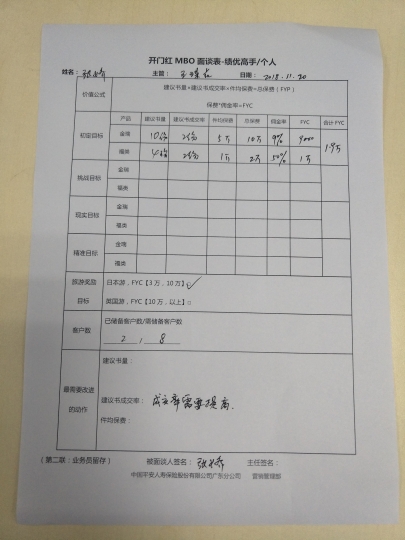 开门红 MBO 面谈表-绩优高手/个人
姓名： 主管： 日期：2018.11.20
价值公式
建议书量×建议书成交率×件均保费=总保费（FYP）
保费*佣金率=FYC
初定目标 产品 建议书量 建议书成交率 件均保费 总保费 佣金率 FYC 合计 FYC
金瑞 10份 2份 5万 10万 9% 9000 1.9万
福类 4份 2份 1万 2万 50% 1万
挑战目标 金瑞
福类
现实目标 金瑞
福类
精准目标 金瑞
福类
旅游奖励 日本游，FYC【3 万，10 万】✓
目标 英国游，FYC【10 万，以上】□
客户数 已储备客户数/需储备客户数
2 / 8
最需要改进的动作
建议书量：
建议书成交率：成交率需要提高.
件均保费：
（第二联：业务员留存） 被面谈人签名： 主任签名：
中国平安人寿保险股份有限公司广东分公司 营销管理部